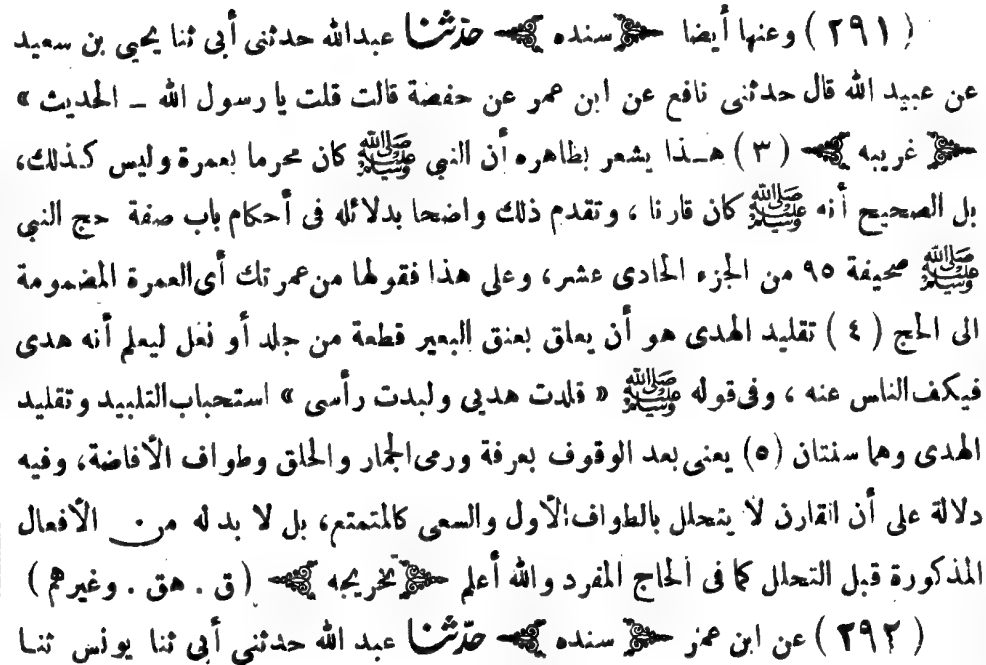 ( ٢٩١ ) وعنها أيضا ﴿ سنده ﴾ حدّثنا عبدالله حدثنى أبى ثنا يحيى بن سعيد
عن عبيد الله قال حدثنى نافع عن ابن عمر عن حفصة قالت قلت يا رسول الله ــ الحديث »
﴿ غريبه ﴾ ( ٣ ) هــذا يشعر بظاهره أن النبى ﷺ كان محرما بعمرة وليس كـذلك،
بل الصحيح أنه ﷺ كان قارنا ، وتقدم ذلك واضحا بدلائله فى أحكام باب صفة حج النبى
ﷺ صحيفة ٩٥ من الجزء الحادى عشر، وعلى هذا فقولها من عمرتك أى العمرة المضمومة
الى الحج ( ٤ ) تقليد الهدى هو أن يعلق بعنق البعير قطعة من جلد أو نعل ليعلم أنه هدى
فيكف الناس عنه ، وفى قوله ﷺ « قلدت هديى ولبدت رأسى » استحباب التلبيد وتقليد
الهدى وهما سنتان (٥) يعنى بعد الوقوف بعرفة ورمى الجمار والحلق وطواف الأفاضة، وفيه
دلالة على أن القارن لا يتحلل بالطواف الأول والسعى كالمتمتع، بل لا بد له من الأفعال
المذكورة قبل التحلل كما فى الحاج المفرد والله أعلم ﴿ تخريجه ﴾ ( ق . هق . وغيرهم )
( ٢٩٢ ) عن ابن عمر ﴿ سنده ﴾ حدّثنا عبد الله حدثنى أبى ثنا يونس ثنـا